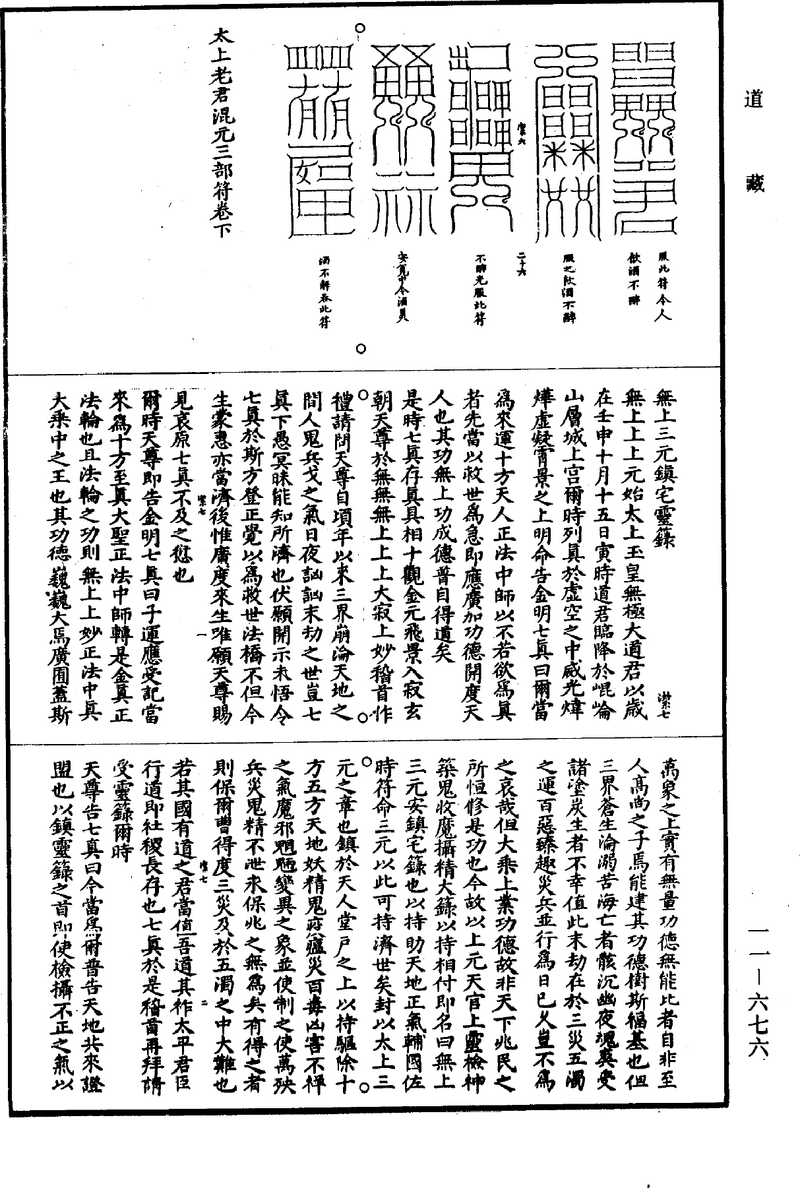 道藏
服此符令人
飲酒不醉
服之飲酒不醉
潔六
二十六
不醉先服此符
安瓮中令酒美
酒不解吞此符
太上老君混元三部符卷下
無上三元鎮宅靈籙
潔七
無上上元始太上玉皇無極大道君以歲
在壬申十月十五日寅時道君臨降於崐崘
山層城上宮爾時列真於虛空之中威光煒
燁虛凝霄景之上明命告金明七真曰爾當
為來運十方天人正法中師以不若欲為真
者先當以救世為急即應廣加功德開度天
人也其功無上功成德普自得道矣
是時七真存真具相十觀金元飛景入寂玄
朝天尊於無無無上上上大寂上妙稽首作
禮請問天尊自頃年以來三界崩淪天地之
間人鬼兵戈之氣日夜訩訩末劫之世豈七
真下愚冥昧能知所濟也伏願開示未悟令
七真於斯方登正覺以為救世法橋不但今
生蒙惠亦當濟後惟廣度來生唯願天尊賜
潔七
一
見哀原七真不及之愆也
爾時天尊即告金明七真曰子運應受記當
來為十方至真大聖正法中師轉是金真正
法輪也且法輪之功則無上上妙正法中真
大乘中之王也其功德巍巍大焉廣囿蓋斯
萬象之上實有無量功德無能比者自非至
人高尚之子焉能建其功德樹斯福基也但
三界蒼生淪溺苦海亡者骸沉幽夜魂爽受
諸塗炭生者不幸值此末劫在於三災五濁
之運百惡臻趣災兵並行為日已久豈不為
之哀哉但大乘上業功德故非天下兆民之
所恒修是功也今故以上元天官上靈檢神
築鬼收魔攝精大籙以持相付即名曰無上
三元安鎮宅籙也以持助天地正氣輔國佐
時符命三元以此可持濟世矣封以太上三
元之章也鎮於天人堂戶之上以持驅除十
方五方天地妖精鬼疰瘟災百毒凶害不祥
之氣魔邪魍魎變異之象並使制之使萬殃
兵災鬼精不泄永保兆之無為矣有得之者
則保爾曹得度三災及於五濁之中大難也
潔七
二
若其國有道之君當值吾道其祚太平君臣
行道即社稷長存也七真於是稽首再拜請
受靈籙爾時
天尊告七真曰今當為爾普告天地共來證
盟也以鎮靈籙之首即使檢攝不正之氣以
一一—六七六